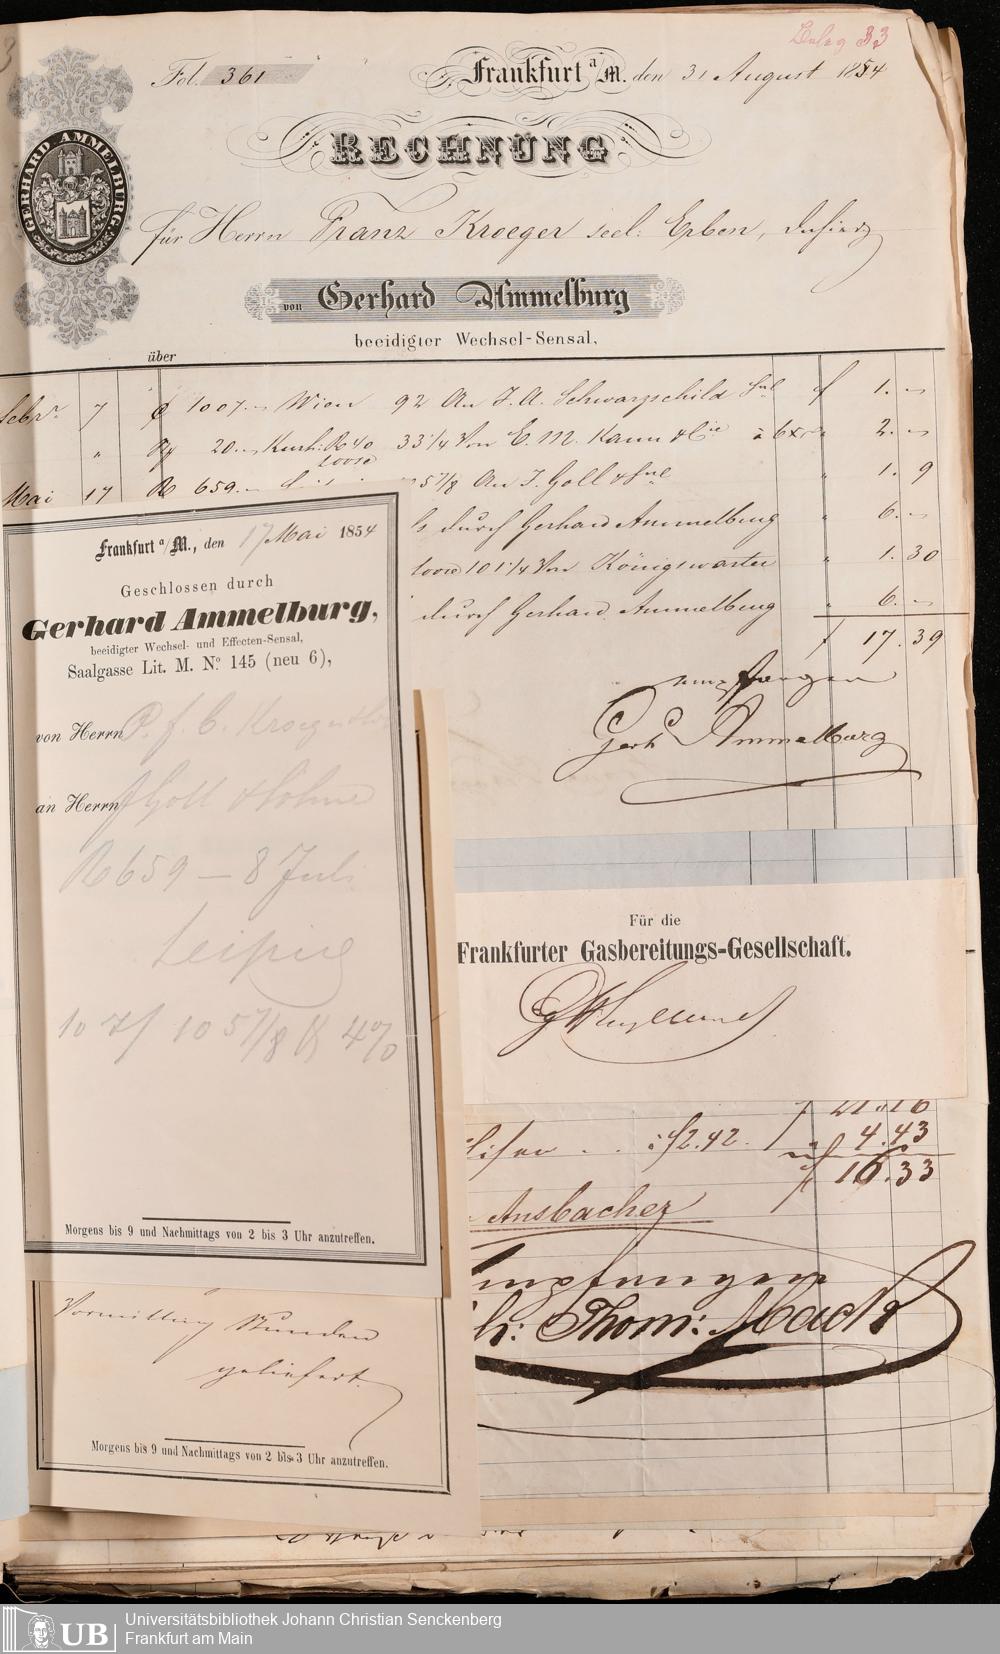 Beleg 33
Fol. 361
Frankfurt a/M. den 31 August 1854
RECHNUNG
GERHARD AMMELBURG
für Herrn Franz Kroeger seel: Erben, dahier
von Gerhard Ammelburg
beeidigter Wechsel-Sensal,
über
Febr. 7 1007. Wien 92 An J. A. Schwarzschild f 1. —
" 20. — Kurh: 40 33 1/4 Von E. M. Kann & Cie à 6xr " 2. —
Loose
Mai 17 R 659. — 5 7/8 An J. Goll & " 1. 9
durch Gerhard Ammelburg " 6. —
Loose 101 1/4 Von Königswarter " 1. 30
durch Gerhard Ammelburg " 6. —
f 17. 39
empfangen
Gerh Ammelburg
Frankfurt a/M., den 17 Mai 1854
Geschlossen durch
Gerhard Ammelburg,
beeidigter Wechsel- und Effecten-Sensal,
Saalgasse Lit. M. No. 145 (neu 6),
von Herrn P. f. C. Kroeger
an Herrn J Goll & Söhne
R 659 — 8 Juli
Leipzig
105 7/8 4%
Morgens bis 9 und Nachmittags von 2 bis 3 Uhr anzutreffen.
Für die
Frankfurter Gasbereitungs-Gesellschaft.
21.16
f 2.42. 4.43
f 16.33
Ansbacher
empfangen
Thom: Mack
Vormittag Stunden
geliefert.
Morgens bis 9 und Nachmittags von 2 bis 3 Uhr anzutreffen.
UB
Universitätsbibliothek Johann Christian Senckenberg
Frankfurt am Main